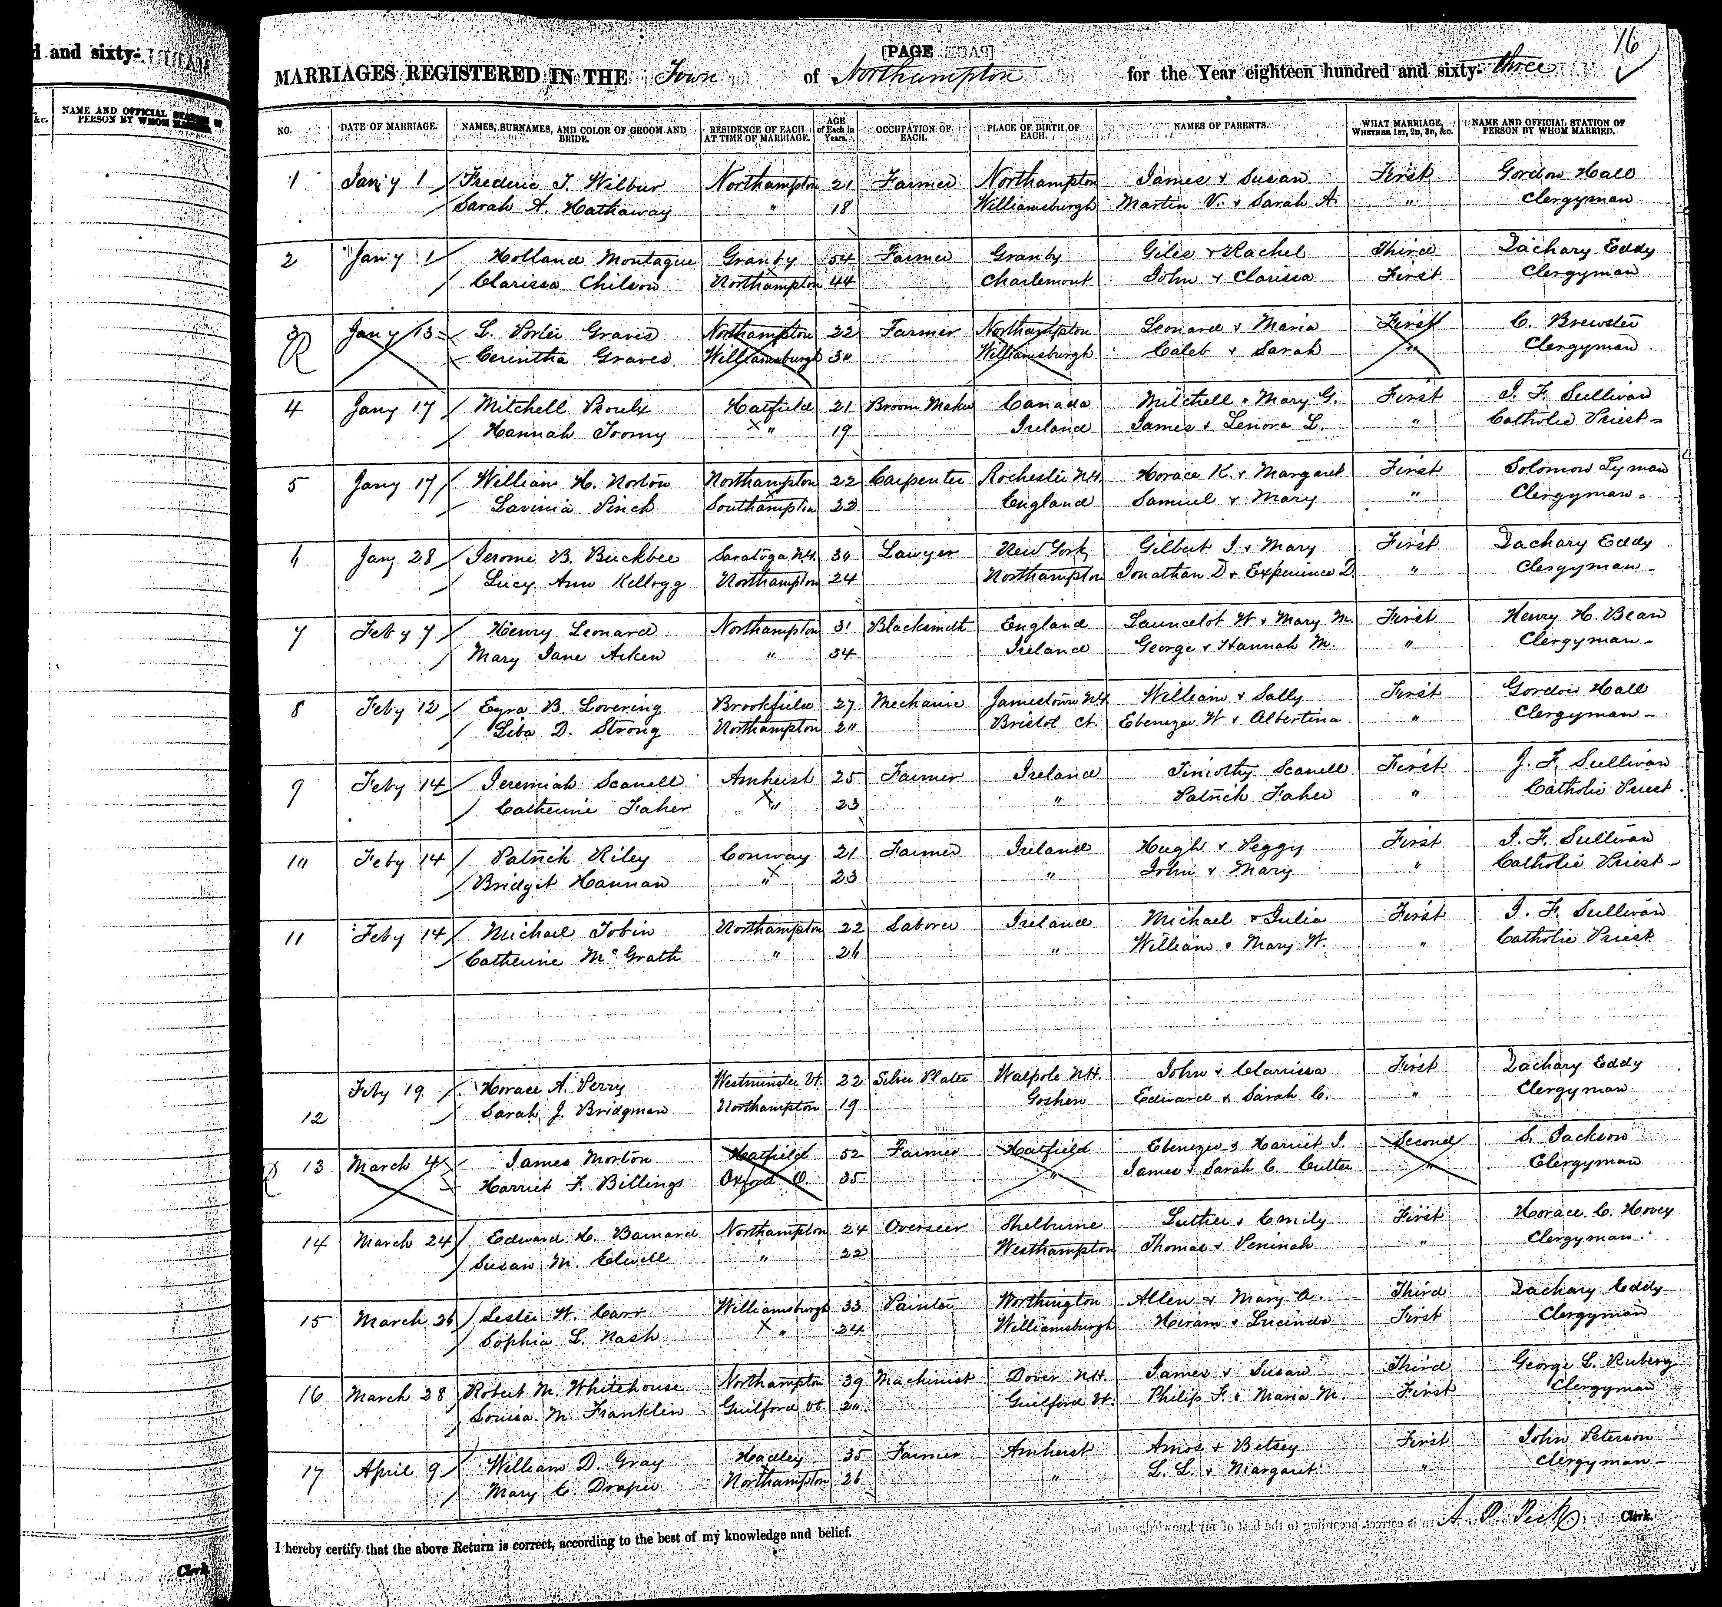 d and sixty-
NAME AND OFFICIAL STATION OF
PERSON BY WHOM MARRIED.
&c.
Clerk
16
[PAGE
MARRIAGES REGISTERED IN THE Town of Northampton for the Year eighteen hundred and sixty-three
NO. DATE OF MARRIAGE. NAMES, SURNAMES, AND COLOR OF GROOM AND BRIDE. RESIDENCE OF EACH AT TIME OF MARRIAGE. AGE of Each in Years. OCCUPATION OF EACH. PLACE OF BIRTH OF EACH. NAMES OF PARENTS. WHAT MARRIAGE, WHETHER 1ST, 2D, 3D, &c. NAME AND OFFICIAL STATION OF PERSON BY WHOM MARRIED.
1 Jan'y 1 Frederic T. Wilbur Northampton 21 Farmer Northampton James & Susan First Gordon Hall
Sarah A. Hathaway " 18 Williamsburgh Martin V. & Sarah A. " Clergyman
2 Jan'y 1 Holland Montague Granby 54 Farmer Granby Giles & Rachel Third Zachary Eddy
Clarissa Chilson Northampton 44 Charlemont John & Clarissa First Clergyman
3 Jany 13 L. Porter Graves Northampton 22 Farmer Northampton Leonard & Maria First C. Brewster
R Cerintha Graves Williamsburgh 30 Williamsburgh Caleb & Sarah " Clergyman
4 Jany 17 Mitchell Proulx Hatfield 21 Broom Maker Canada Mitchell & Mary G. First J. F. Sullivan
Hannah Toomy " 19 Ireland James & Lenora L. " Catholic Priest
5 Jany 17 William H. Norton Northampton 22 Carpenter Rochester N.H. Horace K. & Margaret First Solomon Lyman
Lavinia Pinch Southampton 22 England Samuel & Mary " Clergyman
6 Jany 28 Jerome B. Buckbee Saratoga N.Y. 30 Lawyer New York Gilbert J. & Mary First Zachary Eddy
Lucy Ann Kellogg Northampton 24 Northampton Jonathan D. & Experience D. " Clergyman
7 Feby 7 Henry Leonard Northampton 31 Blacksmith England Launcelot W. & Mary M. First Henry H. Bean
Mary Jane Aiken " 34 Ireland George & Hannah M. " Clergyman
8 Feby 12 Ezra B. Lovering Brookfield 27 Mechanic Jamestown N.Y. William & Sally First Gordon Hall
Liba D. Strong Northampton 20 Bristol Ct. Ebenezer W. & Albertina " Clergyman
9 Feby 14 Jeremiah Scanell Amherst 25 Farmer Ireland Timothy Scanell First J. F. Sullivan
Catherine Faher " 23 " Patrick Faher " Catholic Priest
10 Feby 14 Patrick Riley Conway 21 Farmer Ireland Hugh & Peggy First J. F. Sullivan
Bridget Hannan " 23 " John & Mary " Catholic Priest
11 Feby 14 Michael Tobin Northampton 22 Laborer Ireland Michael & Julia First J. F. Sullivan
Catherine McGrath " 26 " William & Mary W. " Catholic Priest
Feby 19 Horace A. Perry Westminster Vt. 22 Silver Plater Walpole N.H. John & Clarrissa First Zachary Eddy
12 Sarah J. Bridgman Northampton 19 Goshen Edward & Sarah C. " Clergyman
13 March 4 James Morton Hatfield 52 Farmer Hatfield Ebenezer & Harriet J. Second S. Jackson
R Harriet F. Billings Oxford O. 35 " James & Sarah C. Cutter " Clergyman
14 March 24 Edward C. Barnard Northampton 24 Overseer Shelburne Luther & Emily First Horace C. Hovey
Susan M. Elwell " 22 Westhampton Thomas & Peninah " Clergyman
15 March 26 Lester W. Carr Williamsburgh 33 Painter Worthington Allen & Mary A. Third Zachary Eddy
Sophia L. Nash " 24 Williamsburgh Hiram & Lucinda First Clergyman
16 March 28 Robert M. Whitehouse Northampton 39 Machinist Dover N.H. James & Susan Third George L. Ruberg
Louisa M. Franklin Guilford Vt. 20 Guilford Vt. Philip F. & Maria M. First Clergyman
17 April 9 William D. Gray Hadley 35 Farmer Amherst Amos & Betsey First John Peterson
Mary C. Draper Northampton 26 " L. L. & Margaret " Clergyman
I hereby certify that the above Return is correct, according to the best of my knowledge and belief. A. R. Peck Clerk.